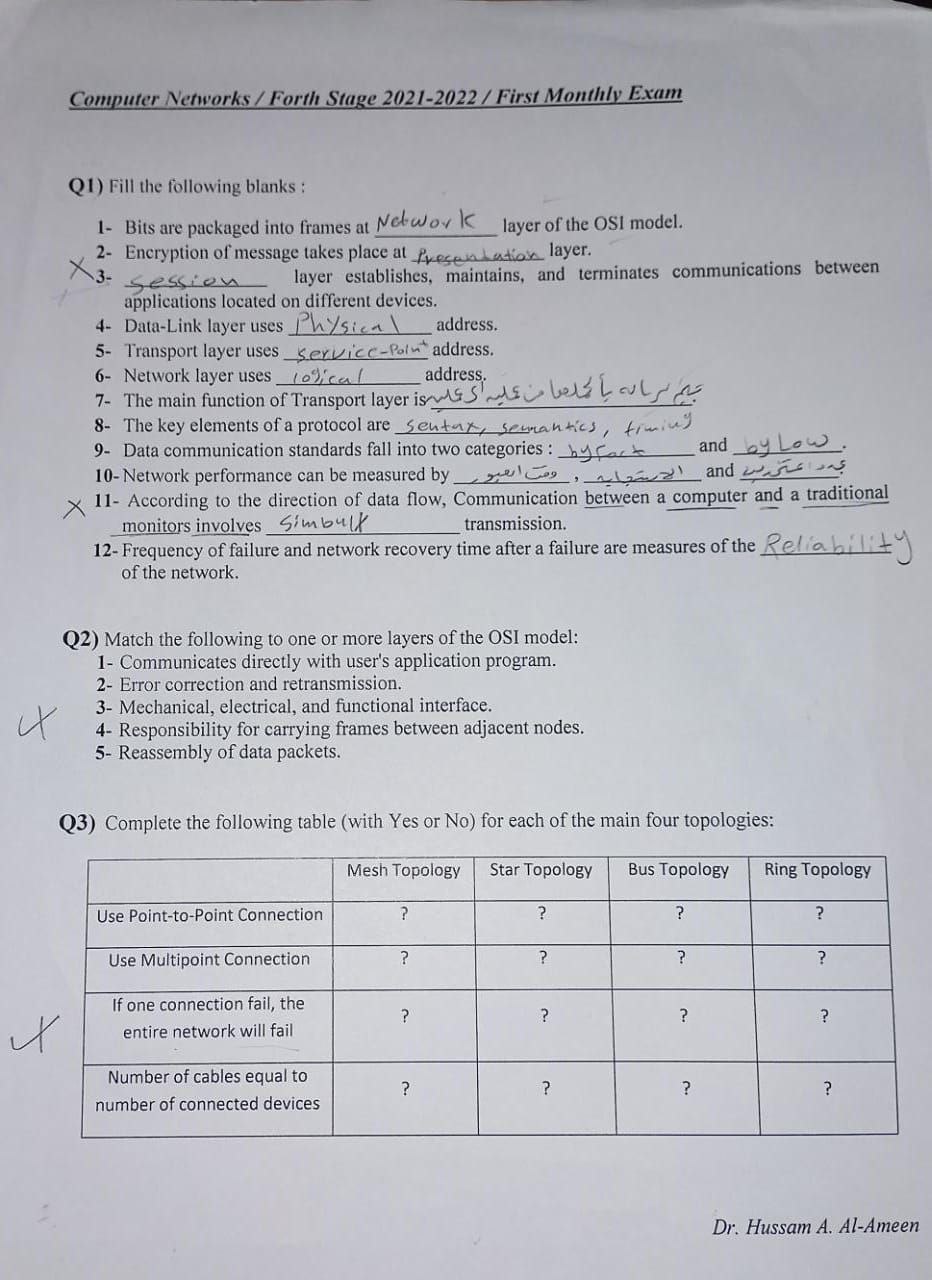 Computer Networks / Forth Stage 2021-2022 / First Monthly Exam
Q1) Fill the following blanks :
1- Bits are packaged into frames at Network layer of the OSI model.
2- Encryption of message takes place at Presentation layer.
3- session layer establishes, maintains, and terminates communications between
applications located on different devices.
4- Data-Link layer uses Physical address.
5- Transport layer uses service-Point address.
6- Network layer uses logical address.
7- The main function of Transport layer is
8- The key elements of a protocol are sentax, semantics, timing
9- Data communication standards fall into two categories : by fact and by Low.
10- Network performance can be measured by وقت العبور , الاستجابه and
11- According to the direction of data flow, Communication between a computer and a traditional
monitors involves Simbulx transmission.
12- Frequency of failure and network recovery time after a failure are measures of the Reliability
of the network.
Q2) Match the following to one or more layers of the OSI model:
1- Communicates directly with user's application program.
2- Error correction and retransmission.
3- Mechanical, electrical, and functional interface.
4- Responsibility for carrying frames between adjacent nodes.
5- Reassembly of data packets.
Q3) Complete the following table (with Yes or No) for each of the main four topologies:
Mesh Topology Star Topology Bus Topology Ring Topology
Use Point-to-Point Connection ? ? ? ?
Use Multipoint Connection ? ? ? ?
If one connection fail, the
entire network will fail ? ? ? ?
Number of cables equal to
number of connected devices ? ? ? ?
Dr. Hussam A. Al-Ameen